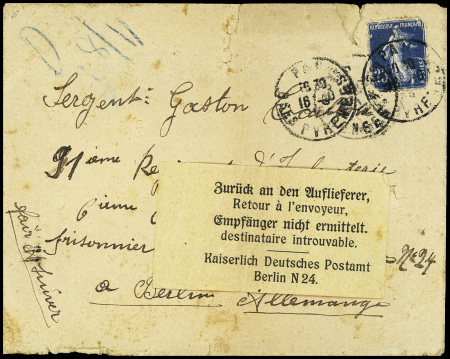 RÉPUBLIQUE FRANÇAISE
PAU
16 30
BSES PYRENEES
Sergent Gaston
ième Rég d'Infanterie
6ième
prisonnier No 24
à Berlin Allemange
faire suiver
Zurück an den Auflieferer,
Retour à l'envoyeur,
Empfänger nicht ermittelt.
destinataire introuvable.
Kaiserlich Deutsches Postamt
Berlin N 24.